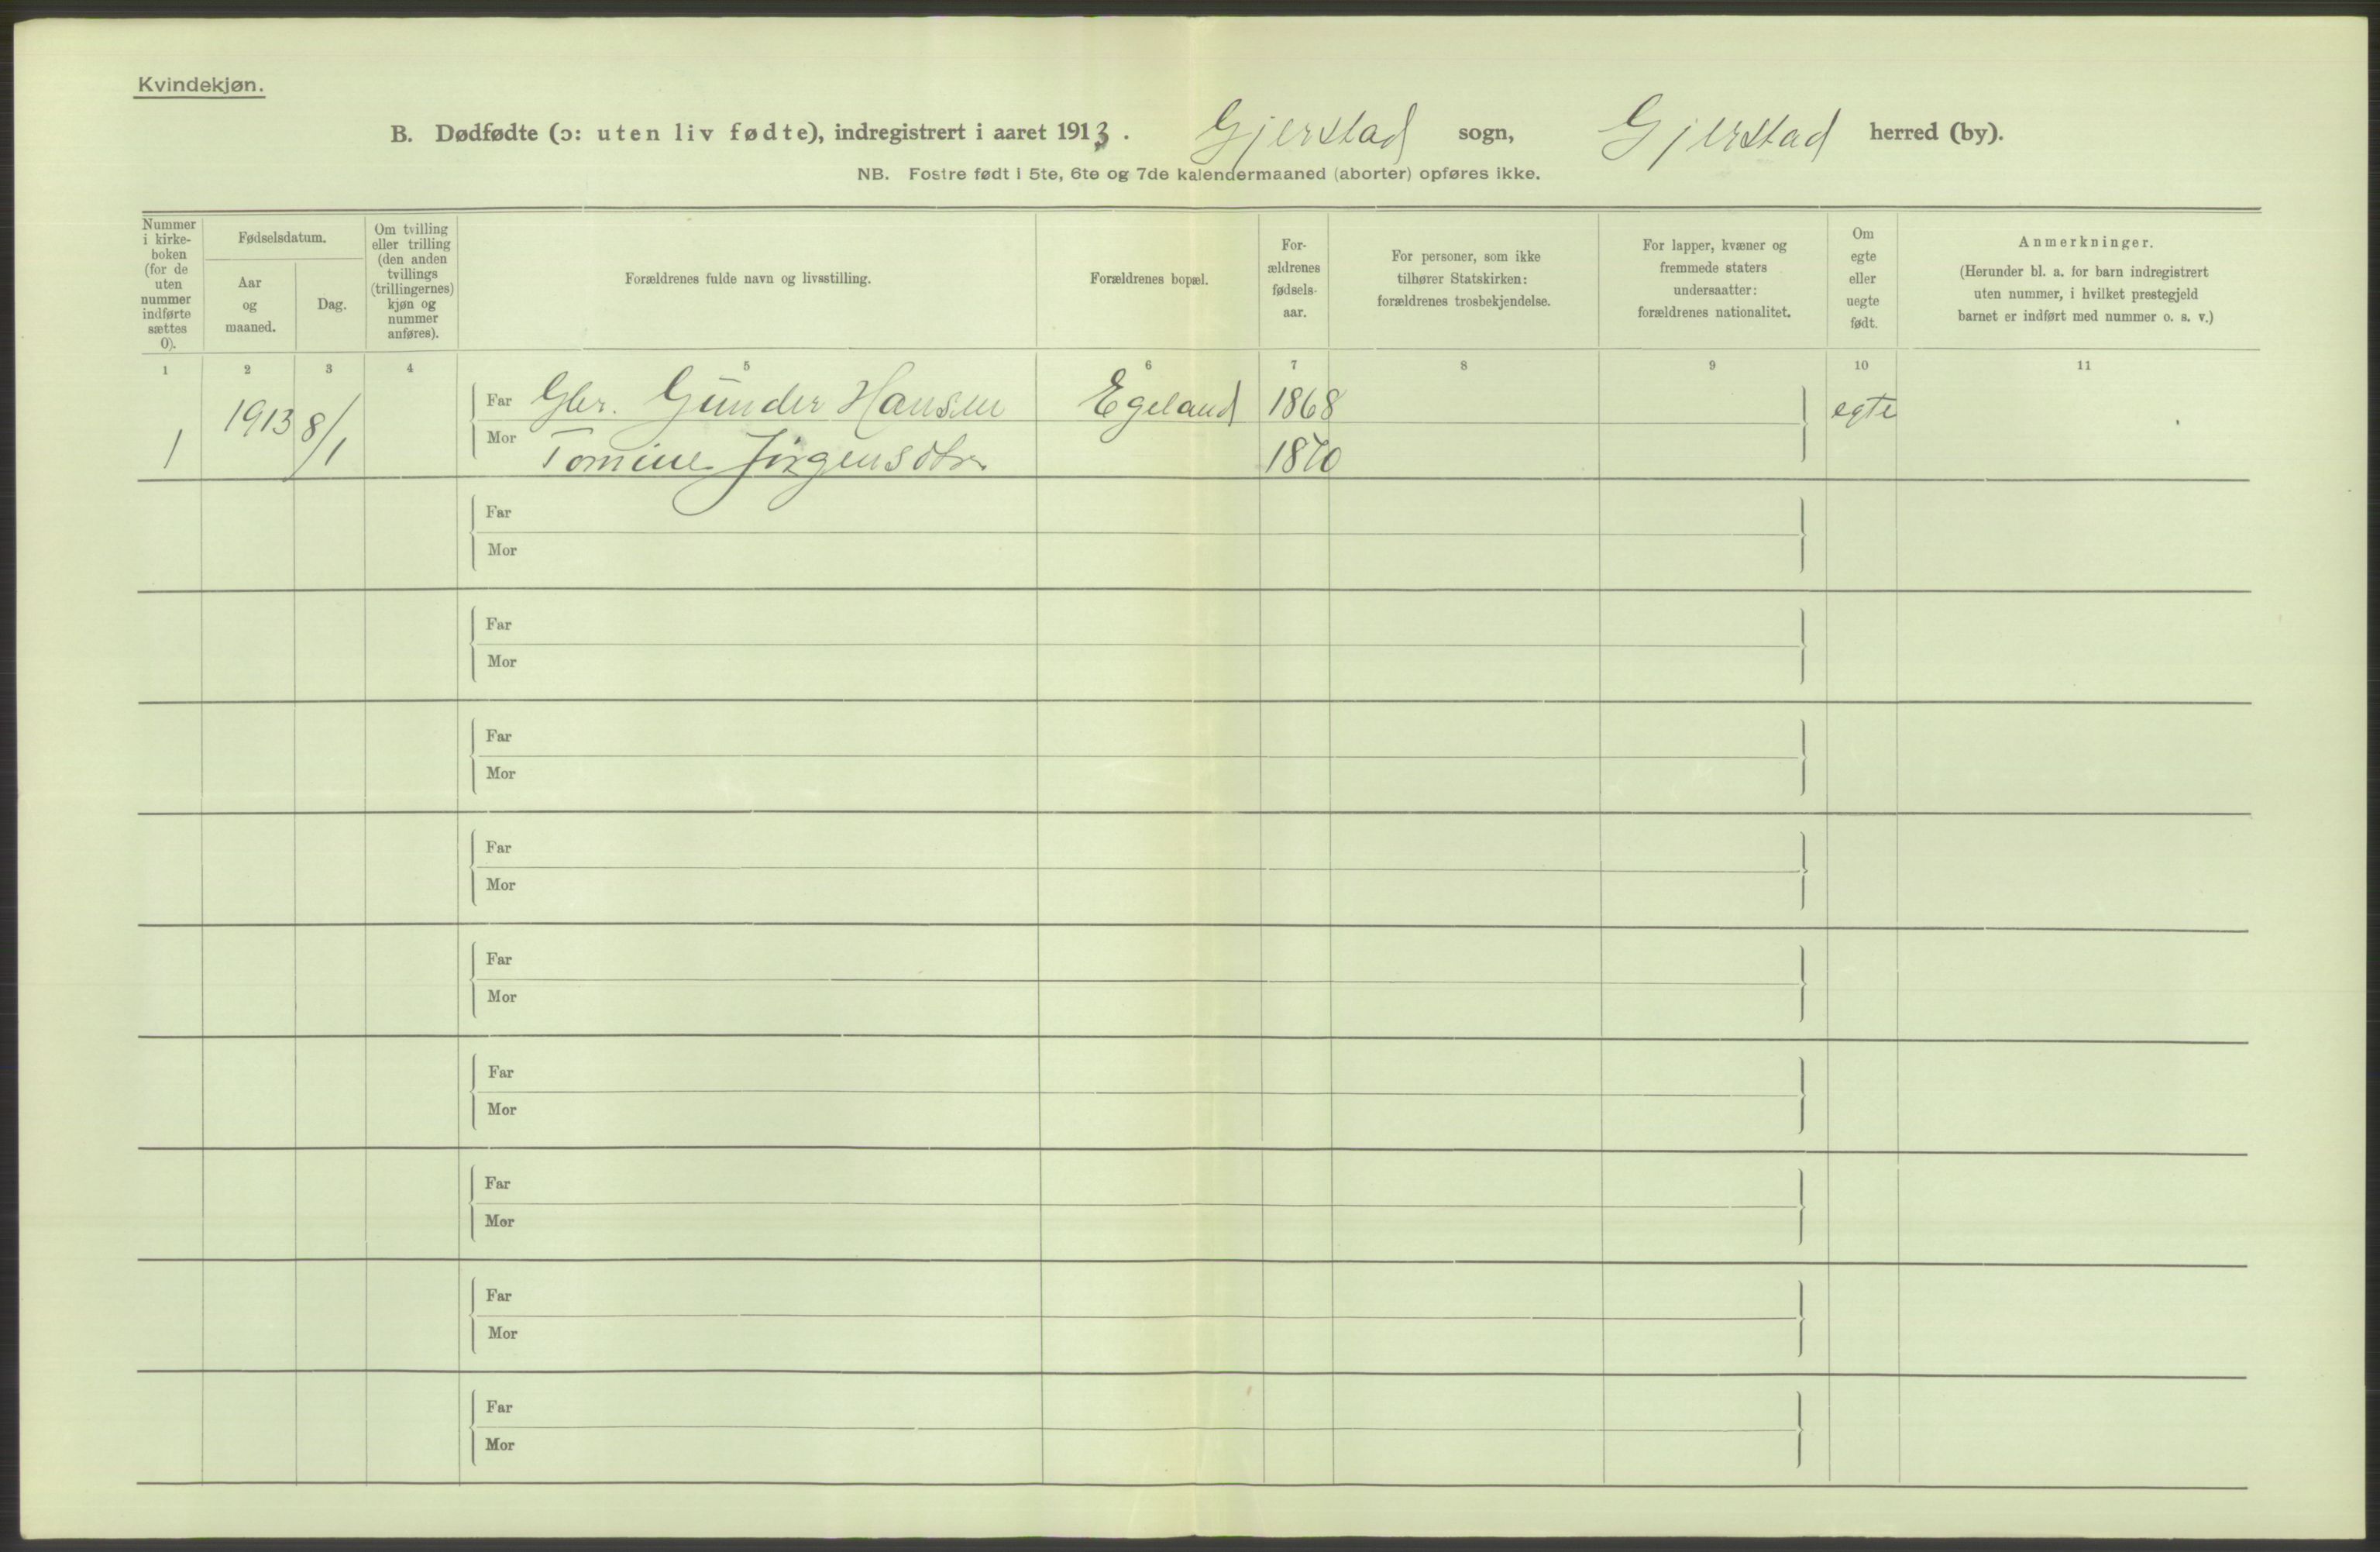 Kvindekjøn.
B. Dødfødte (ɔ: uten liv fødte), indregistrert i aaret 1913. Gjerstad sogn, Gjerstad herred (by).
NB. Fostre født i 5te, 6te og 7de kalendermaaned (aborter) opføres ikke.
Nummer
i kirke-
boken
(for de
uten
nummer
indførte
sættes
0).
Fødselsdatum.
Aar
og
maaned.
Dag.
Om tvilling
eller trilling
(den anden
tvillings
(trillingernes)
kjøn og
nummer
anføres).
Forældrenes fulde navn og livsstilling.
Forældrenes bopæl.
For-
ældrenes
fødsels-
aar.
For personer, som ikke
tilhører Statskirken:
forældrenes trosbekjendelse.
For lapper, kvæner og
fremmede staters
undersaatter:
forældrenes nationalitet.
Om
egte
eller
uegte
født.
Anmerkninger.
(Herunder bl. a. for barn indregistrert
uten nummer, i hvilket prestegjeld
barnet er indført med nummer o. s. v.)
1 2 3 4 5 6 7 8 9 10 11
1 1913 8/1 Far Gbr. Gunder Hansen Egeland 1868 egte
Mor Tomine Jørgensdtr. 1870
Far
Mor
Far
Mor
Far
Mor
Far
Mor
Far
Mor
Far
Mor
Far
Mor
Far
Mor
Far
Mor